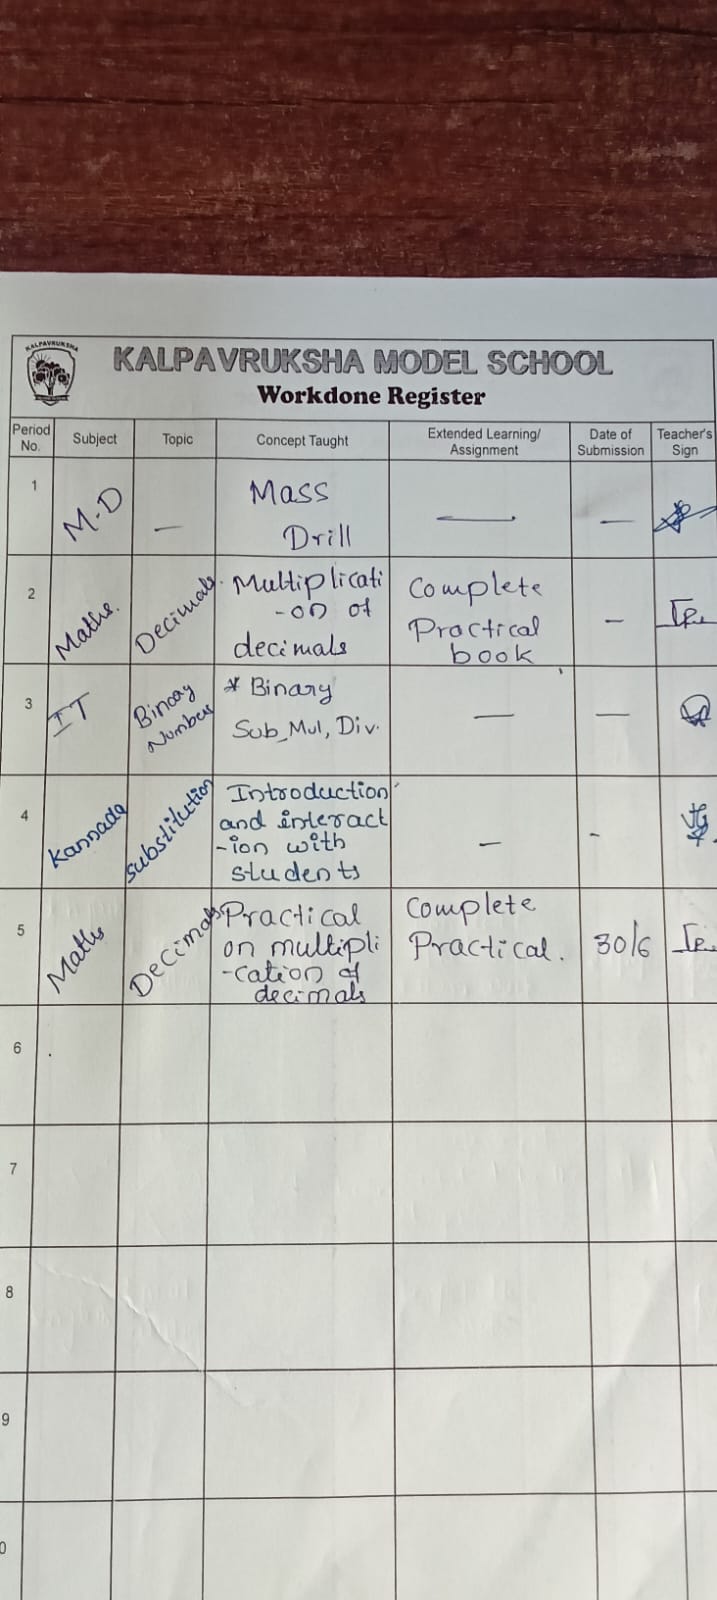 KALPAVRUKSHA
KALPAVRUKSHA MODEL SCHOOL
Workdone Register
Period No. Subject Topic Concept Taught Extended Learning/ Assignment Date of Submission Teacher's Sign
1 M.D — Mass — —
Drill
2 Maths. Decimals. Multiplicati Complete —
-on of Practical
decimals book
3 IT Binary * Binary — —
Numbers Sub_Mul, Div.
4 Kannada substitution Introduction — -
and interact
-ion with
students
5 Maths Decimals Practical Complete 30/6
on multipli Practical.
-cation of
decimals
6
7
8
9
0